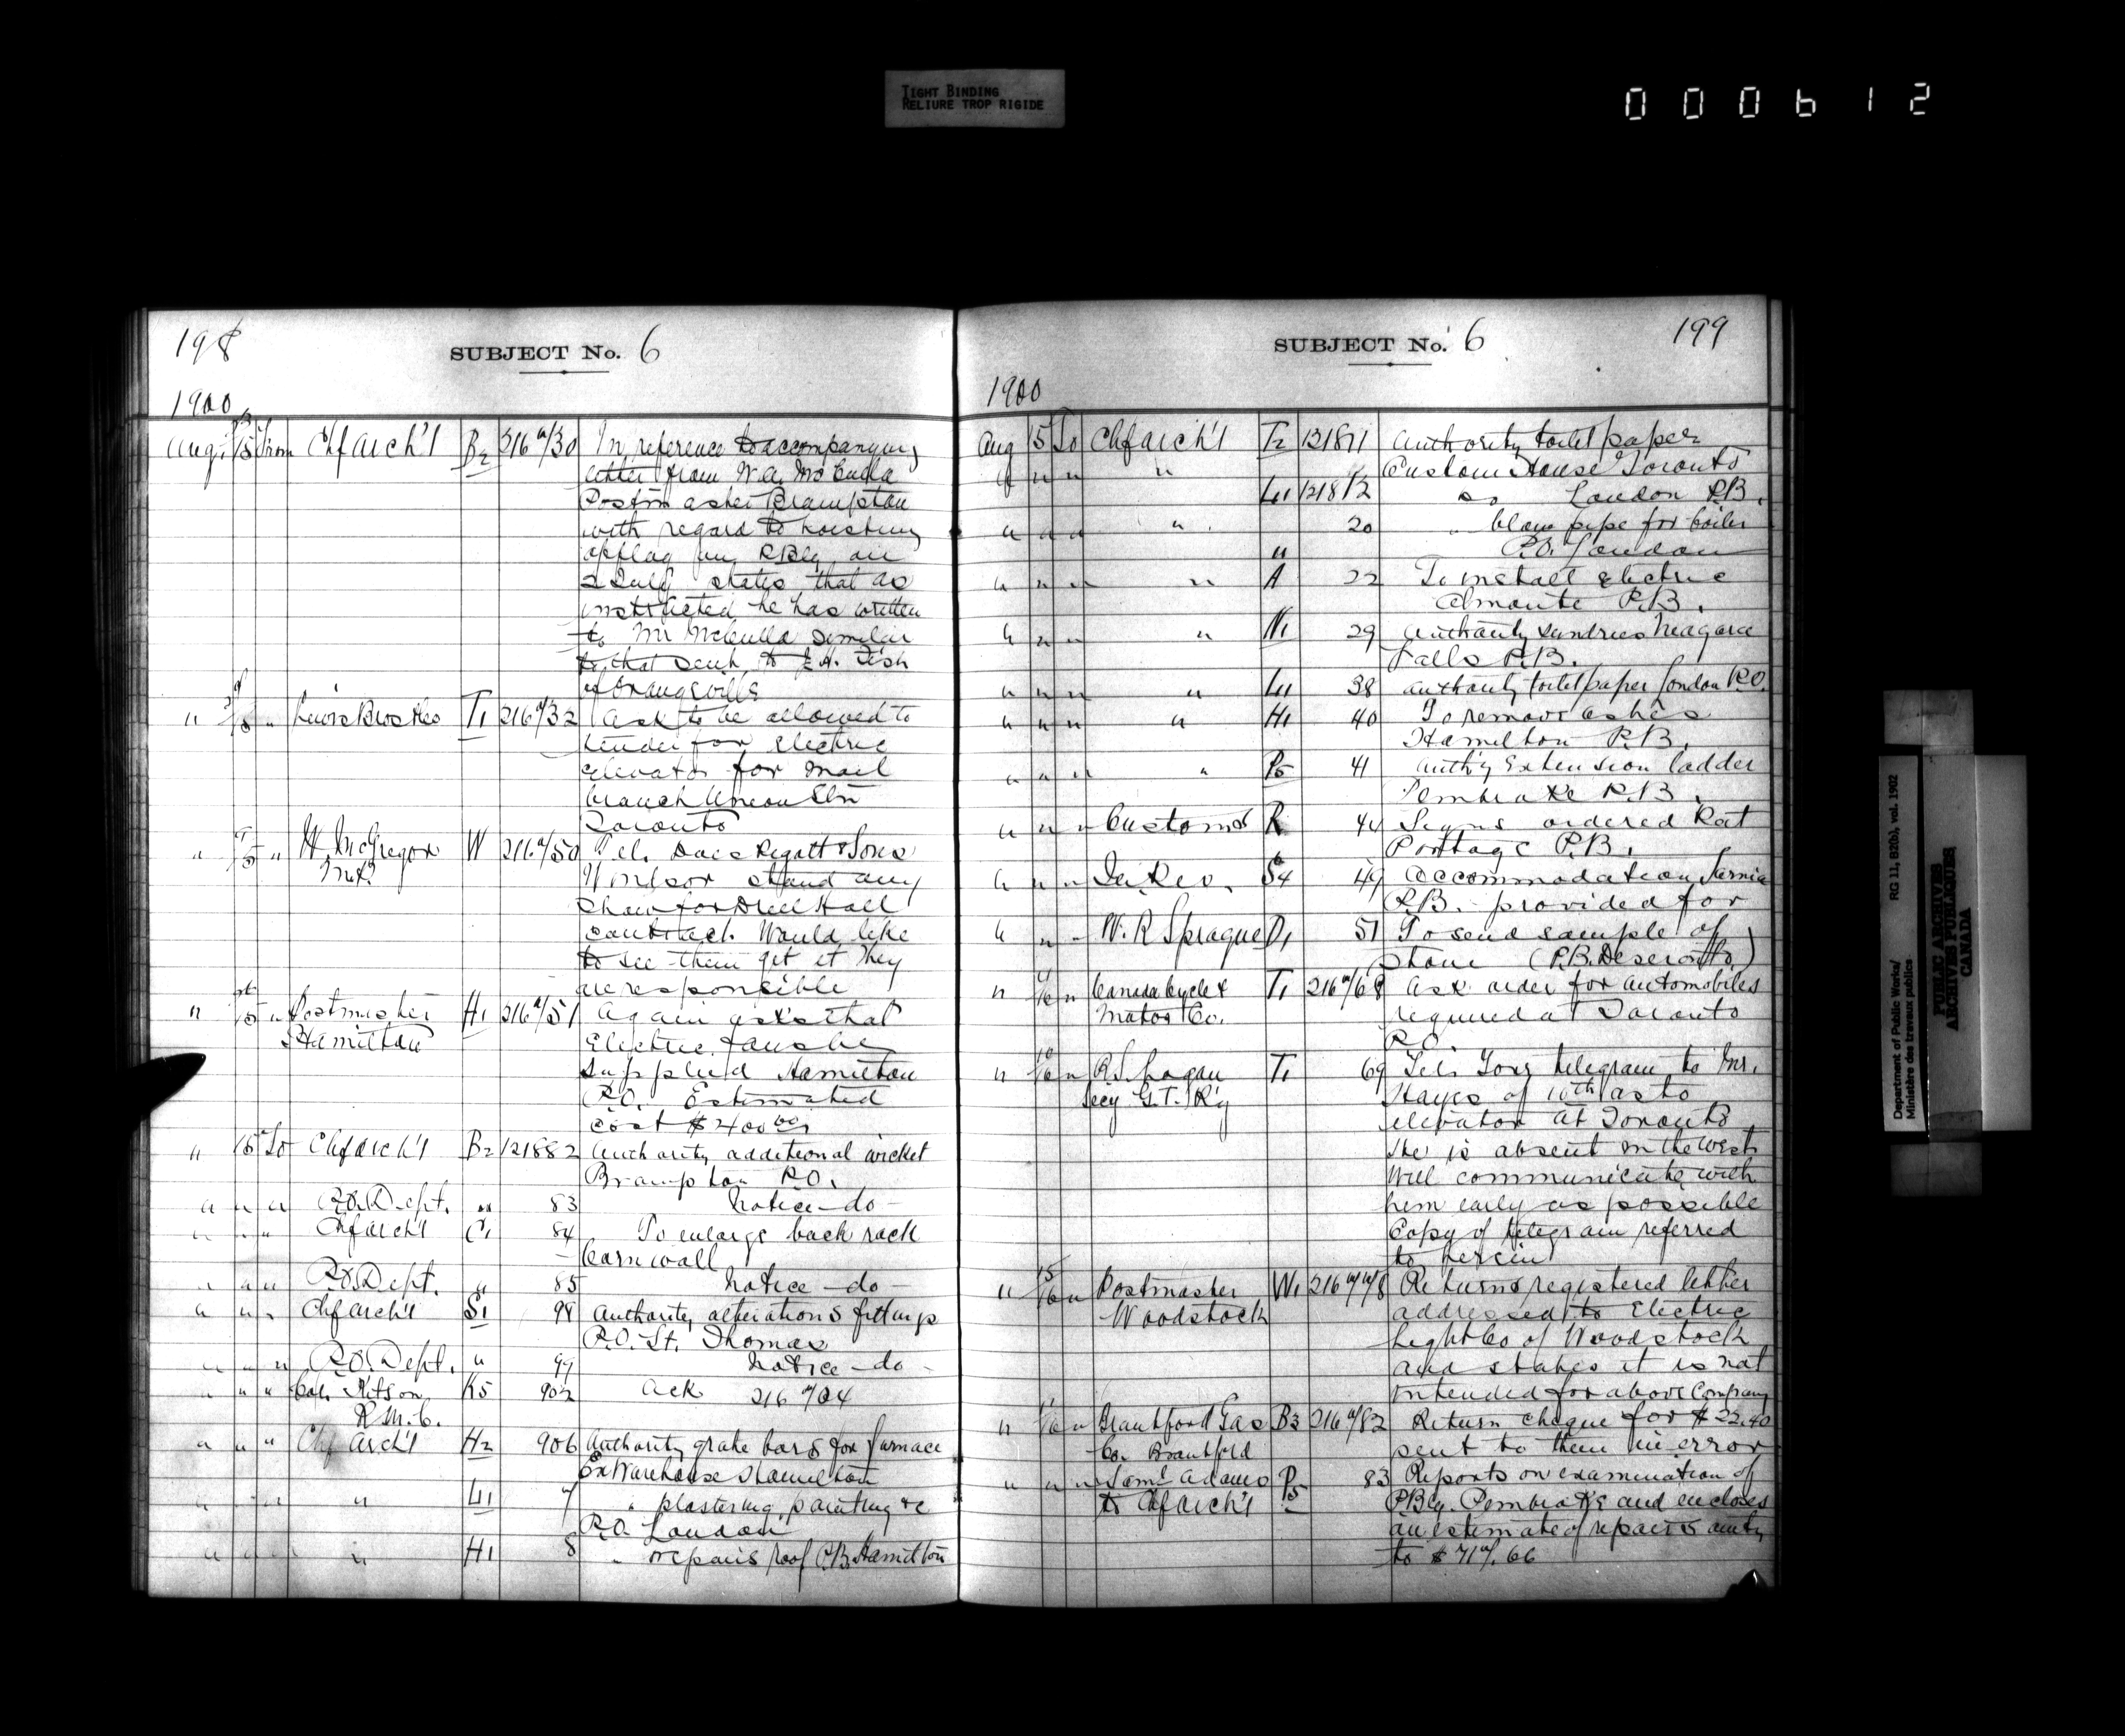 TIGHT BINDING
RELIURE TROP RIGIDE
000612
198
SUBJECT No. 6
1900
Aug. 13/15 From Chf Arch't B2 216a/30 In reference to accompanying
letter from W.A. McCulla
Postmaster Brampton
with regard to hoisting
of flag on P.Bldg on
2 July states that as
instructed he has written
to Mr McCulla similar
to that sent to J.H. Fish
of Orangeville
" /15 " Lewis Bros & Co T1 216a/32 Ask to be allowed to
tender for electric
elevator for mail
branch Union Stn
Toronto
" /15 " W McGregor W 216a/50 Tel. Does Regatt & Sons
M.P.
Windsor stand any
show for Drill Hall
contract. Would like
to see them get it They
are responsible
" /15 " Postmaster H1 216a/51 Again asks that
Hamilton
Electric fans be
supplied Hamilton
P.O. Estimated
cost $400.00
" 15 To Chf Arch't B2 121882 Authority additional wicket
Brampton P.O.
" " " P.O. Dept. " 83 Notice – do –
" " " Chf Arch't C1 84 To enlarge back rack
Cornwall
" " " P.O. Dept. " 85 Notice – do –
" " " Chf Arch't S1 98 Authority alterations fittings
P.O. St. Thomas
" " " P.O. Dept. " 99 Notice – do –
" " " Col. Kitson K5 902 Ack 216a/04
R.M.C.
" " " Chf Arch't H2 906 Authority grate bars for furnace
Ex Warehouse Hamilton
" " " " L1 7 " plastering, painting &c
P.O. London
" " " " H1 8 " repairs roof P.B. Hamilton
SUBJECT No. 6
199
1900
Aug 15 To Chf Arch't T2 121811 Authority toilet paper
Custom House Toronto
" " " " L1 121812 do London P.B.
" " " " " 20 " blow pipe for boiler
P.O. London
" " " " A 22 To install electric
Almonte P.B.
" " " " N1 29 Authority sundries Niagara
Falls P.B.
" " " " L1 38 authority toilet paper London P.O.
" " " " H1 40 To remove ashes
Hamilton P.B.
" " " " P5 41 Auth'y Extension ladder
Pembroke P.B.
" " " Customs R 44 Signs ordered Rat
Portage P.B.
" " " In Rev. S4 49 Accommodation Sarnia
P.B. provided for
" " " W.R Sprague D1 51 To send sample of
stone (P.B. Deseronto)
" /16 " Canada Cycle & T1 216a/68 Ask order for automobiles
Motor Co.
required at Toronto
P.O.
" /16 " R.S. Logan T1 69 Tel. Your telegram to Mr.
Secy G.T. R'y
Hayes of 10th as to
elevator at Toronto
He is absent in the West
Will communicate with
him early as possible
Copy of telegram referred
to herein
" 15/16 " Postmaster W1 Returns registered letter
Woodstock
addressed to Electric
Light Co of Woodstock
and states it is not
intended for above Company
" /16 " Brantford Gas B3 216a/82 Return cheque for $22.40
Co. Brantford
sent to them in error
" " " Saml Adams P5 83 Reports on examination of
to Chf Arch't
P.Bldg. Pembroke and encloses
an estimate of repairs amtg
to
Department of Public Works/
Ministère des travaux publics
RG 11, B20(b), vol. 1902
PUBLIC ARCHIVES
ARCHIVES PUBLIQUES
CANADA